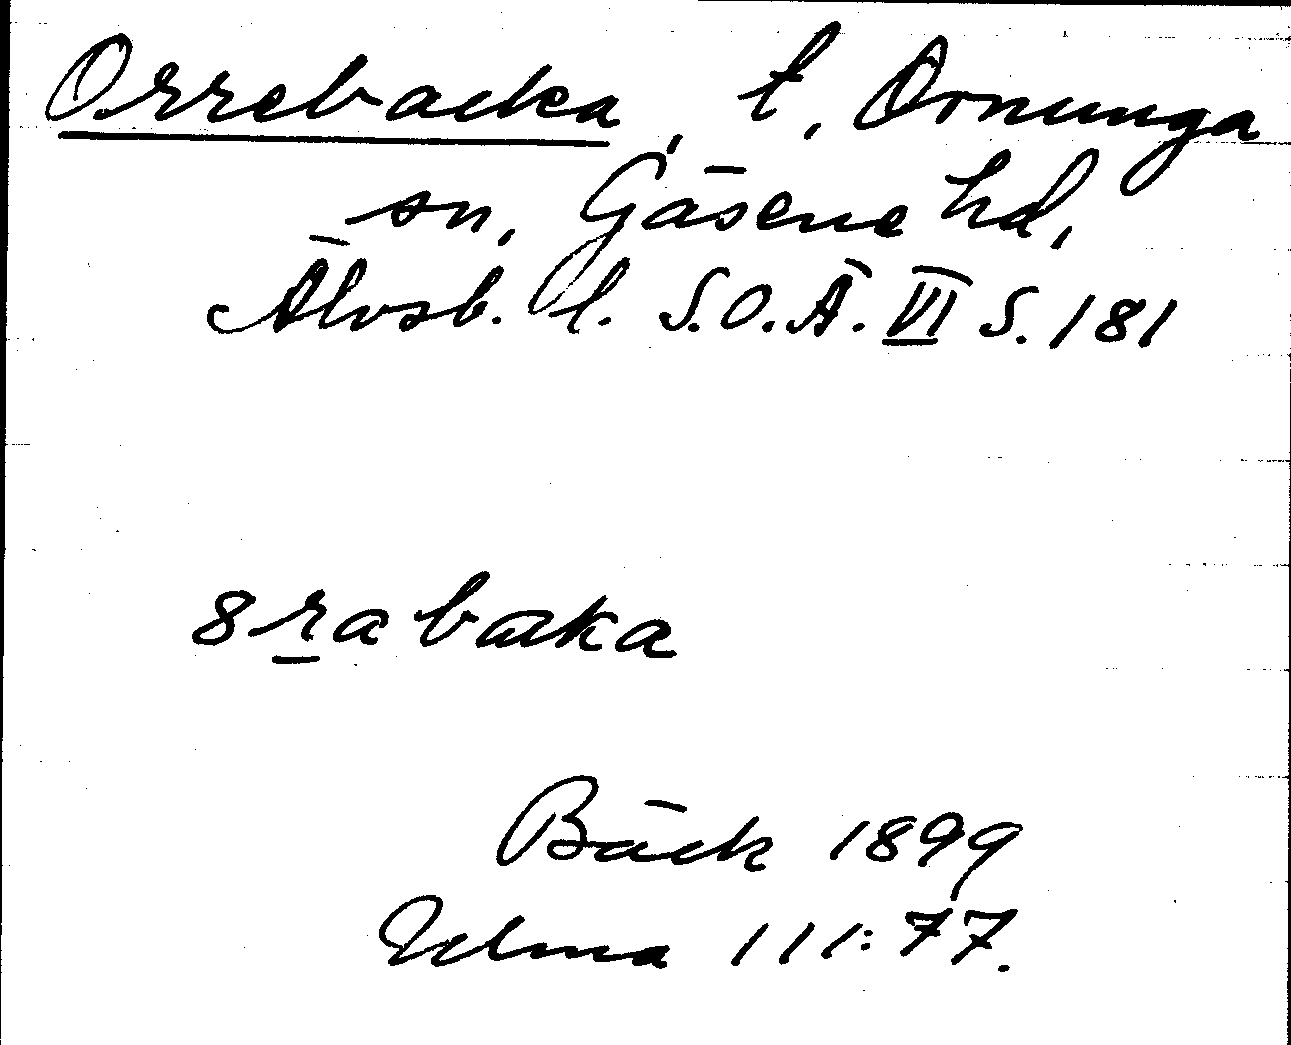 Orrebacka, t, Ornunga
sn, Gäsene hd,
Älvsb. l. S.O.Ä. VI S. 181
8rabaka
Bäck 1899
Udma 111:77.